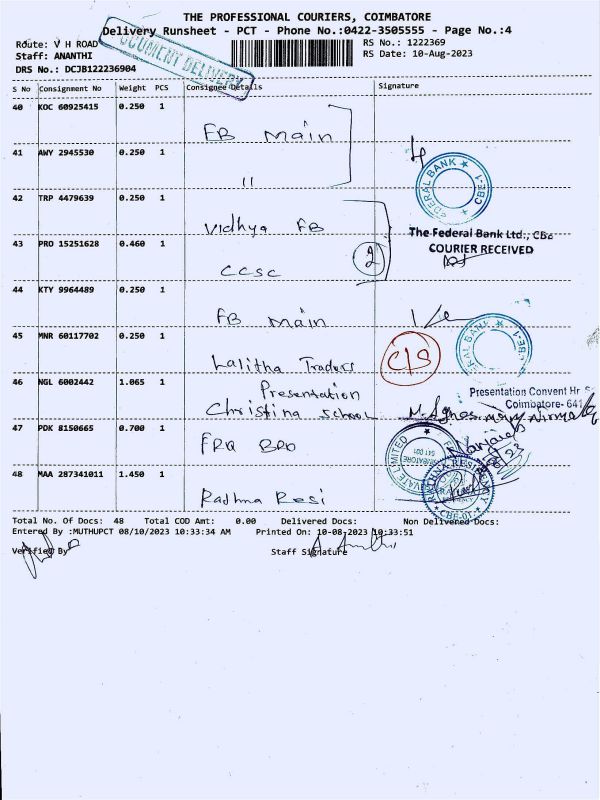 THE PROFESSIONAL COURIERS, COIMBATORE
Delivery Runsheet - PCT - Phone No.:0422-3505555 - Page No.:4
Route: V H ROAD
RS No.: 1222369
Staff: ANANTHI
RS Date: 10-Aug-2023
DRS No.: DCJB122236904
DOCUMENT DELIVERY
S No Consignment No Weight PCS Consignee Details Signature
40 KOC 60925415 0.250 1
FB Main
41 AWY 2945530 0.250 1
"
FEDERAL BANK CBE-1
42 TRP 4479639 0.250 1
Vidhya FB
The Federal Bank Ltd., CBE
COURIER RECEIVED
43 PRO 15251628 0.460 1
CCSC
2
44 KTY 9964489 0.250 1
FB Main
45 MNR 60117702 0.250 1
Lalitha Traders
C/S
ERAL BANK CBE-1
46 NGL 6002442 1.065 1
Presentation
Christina School
Presentation Convent Hr S
Coimbatore- 641
47 PDK 8150665 0.700 1
FRQ BRO
48 MAA 287341011 1.450 1
Radhna Resi
Total No. Of Docs: 48 Total COD Amt: 0.00 Delivered Docs: Non Delivered Docs:
Entered By :MUTHUPCT 08/10/2023 10:33:34 AM Printed On: 10-08-2023 10:33:51
Verified By
Staff Signature